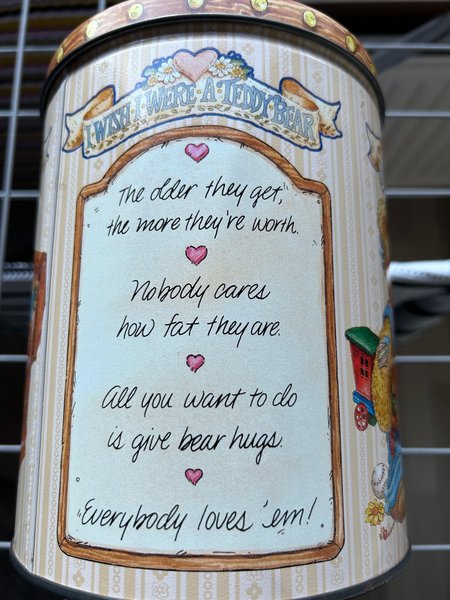 I WISH I WERE A TEDDY BEAR
The older they get,
the more they're worth.
Nobody cares
how fat they are.
All you want to do
is give bear hugs.
Everybody loves 'em!